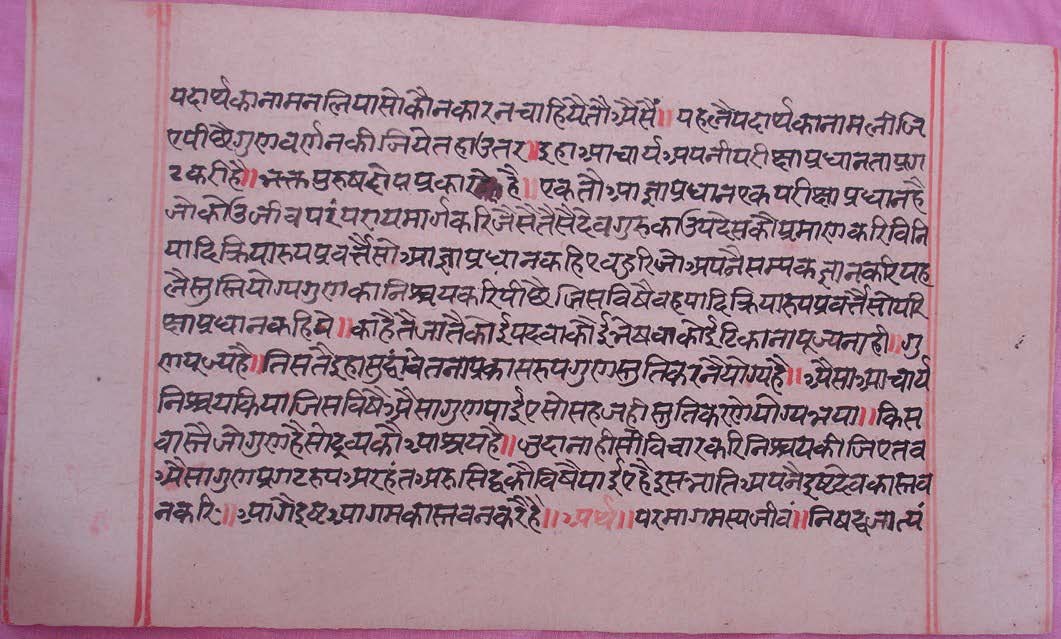 पदार्थकानामनलियासोकौनकारनचाहियेतौअैसैं॥ पहलैपदार्थकानामलीजि
एपीछैगुणवर्णनकीजियेतहाउतर॥इहाआचार्यअपनीपरीक्षाप्रधानताप्रग
टकरीहै॥भक्तपुरुषदोयप्रकारकेहै॥एकतौआज्ञाप्रधानएकपरीक्षाप्रधानहै
जोकोउजीवपरंपरायमार्गकरिजैसेतैसैदेवगुरुकाउपदेसकौप्रमाणकरिविनि
यादिक्रियारूपप्रवर्त्तैसोआज्ञाप्रधानकहिएवहुरिजोअपनैसम्यकज्ञानकरिपह
लैस्तुतियोग्यगुणकानिश्चयकरिपीछै जिसविषैवहुपादिक्रियारूपप्रवर्त्तैसोपरि
क्षाप्रधानकहिये॥काहैतैजातैकोईपदवाकोईभेषवाकोईठिकानापूज्यनाही॥गु
णपूज्यहै॥तिसतैइहासुद्धचेतनाप्रकासरूपगुणस्तुतिकरनैयोग्यहै॥अैसाआचार्य
निश्चयकियाजिसविषैअैसागुणपाईएसोसहजहीस्तुतिकरणेयोग्यभया॥किस
वास्तैजोगुणहैसोद्रव्यकौआश्रयहै॥जुदानाहीसोविचारकरिनिश्चयकीजिएतव
अैसागुणप्रगटरूपअरहंतअरुसिद्धकौविषैपाईएहैइसभातिअपनैइष्टदेवकास्तव
नकरि॥आगैइष्टआगमकास्तवनकरैहै॥अर्थ॥परमागमस्यजीवं॥निषद्धजात्यं